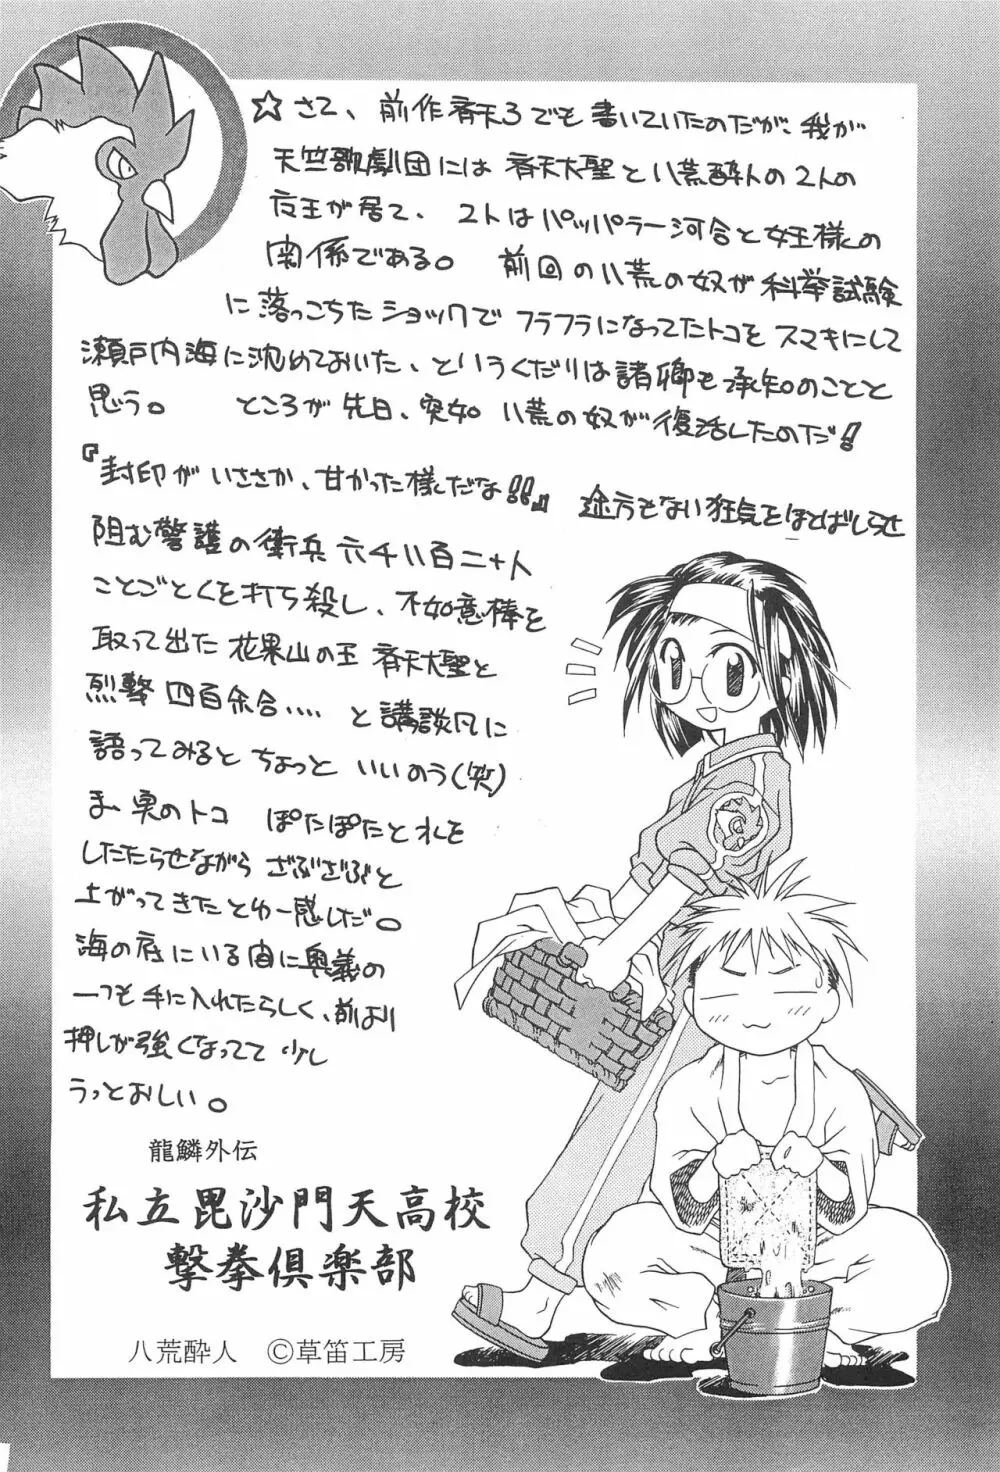 ☆さて、前作斉天3でも書いていたのだが、我が
天竺歌劇団には 斉天大聖と八荒酔人の2人の
女王が居て、 2人はパッパラー河合と女王様の
関係である。 前回の八荒の奴が科挙試験
に落っこちたショックでフラフラになってたトコをスマキにして
瀬戸内海に沈めておいた、というくだりは諸卿も承知のことと
思う。 ところが先日、突如八荒の奴が復活したのだ!
『封印がいささか、甘かった様だな!!』 途方もない狂気をほとばしらせ
阻む警護の衛兵六千八百二十人
ことごとくを打ち殺し、不如意棒を
取って出た花果山の王 斉天大聖と
烈撃四百余合‥‥ と講談風に
語ってみるとちょっといいのう(笑)
ま、実のトコ ぽたぽたと水を
したたらせながら ざぶざぶと
上がってきたとゆー感じだ。
海の底にいる間に奥義の
一つも手に入れたらしく、前より
押しが強くなってて少し
うっとおしい。
龍鱗外伝
私立毘沙門天高校
撃拳倶楽部
八荒酔人 ©草笛工房